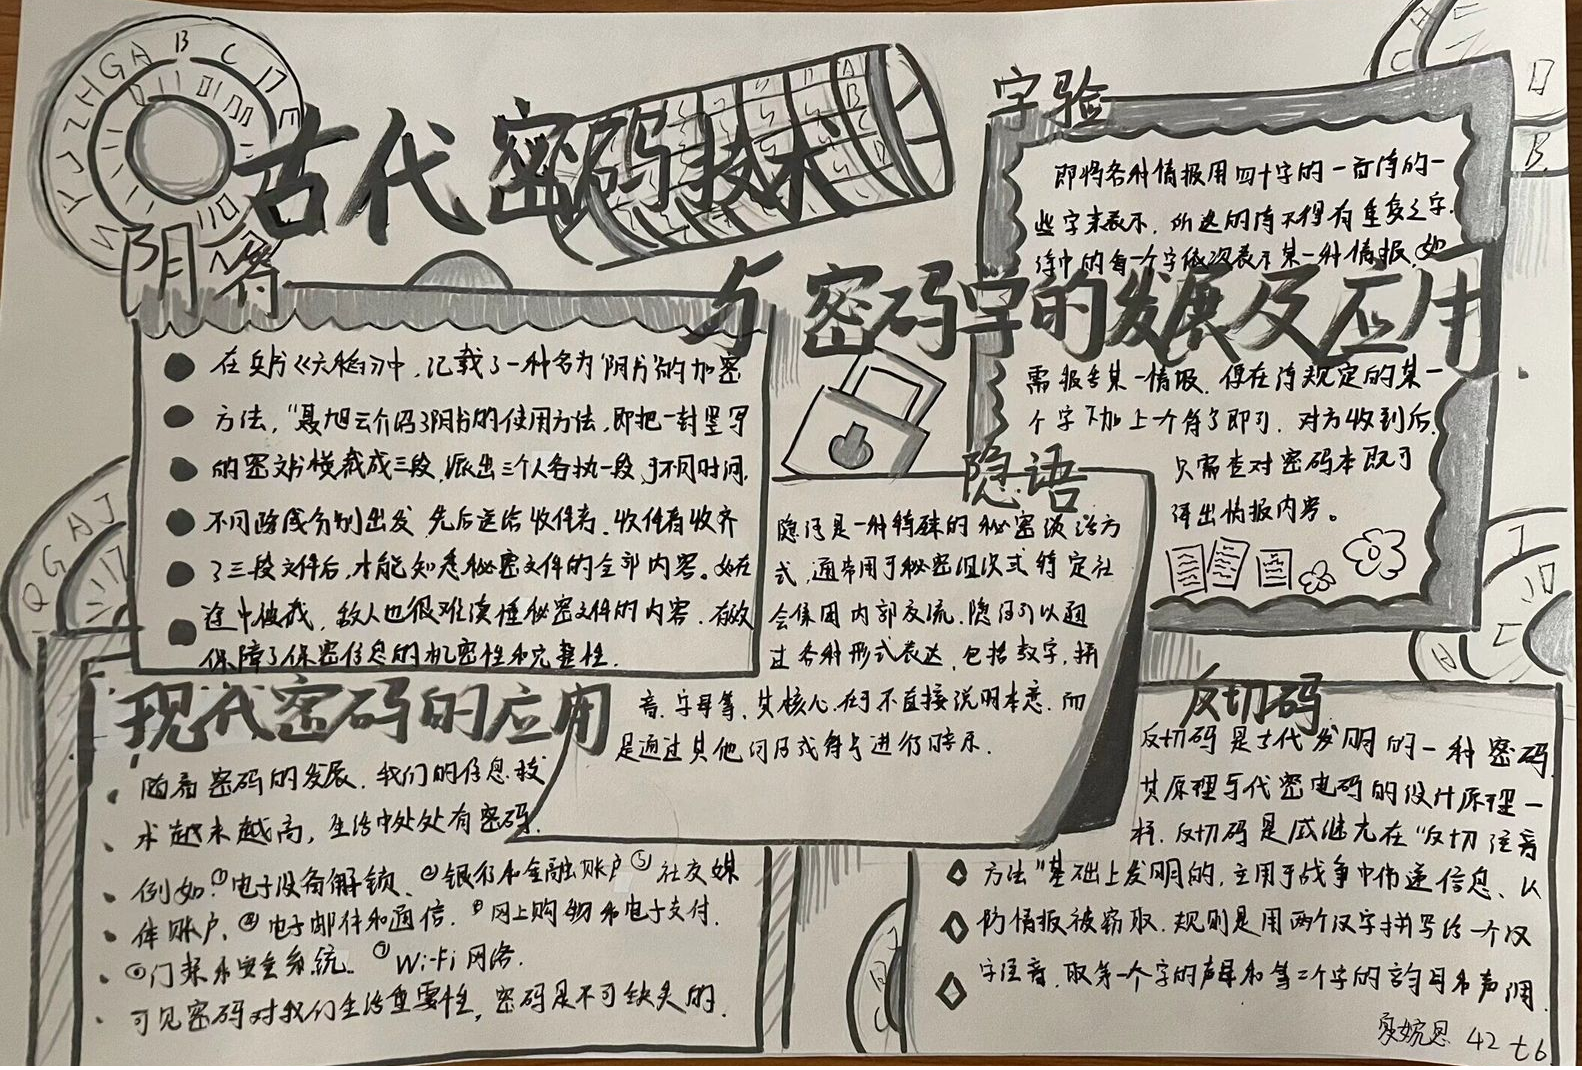 古代密码技术
与密码学的发展及应用
阴符
在兵书《六韬》中,记载了一种名为"阴书"的加密
方法,"
介绍了阴书的使用方法,即把一封竖写
的密文书横裁成三段,派出三个人各执一段,于不同时间,
不同路线分别出发,先后送给收件者.收件者收齐
了三段文件后,才能知悉秘密文件的全部内容。如在
途中被截,敌人也很难读懂秘密文件的内容.有效
保障了保密信息的机密性和完整性.
字验
即将各种情报用四十字的一首诗的一
些字来表示,所选的诗不得有重复之字.
诗中的每一个字依次表示某一种情报,如
需报告某一情报,便在诗规定的某一
个字下加上一个符号即可.对方收到后,
只需查对密码本既可
译出情报内容。
隐语
隐语是一种特殊的秘密演说方
式,通常用于秘密组织或特定社
会集团内部交流.隐语可以通
过各种形式表达,包括数字,拼
音,字母等,其核心在于不直接说明本意.而
是通过其他词语或符号进行暗示.
现代密码的应用
随着密码的发展.我们的信息技
术越来越高,生活中处处有密码.
例如:①电子设备解锁、②银行和金融账户③社交媒
体账户、④电子邮件和通信.⑤网上购物和电子支付.
⑥门禁和安全系统.⑦Wi-Fi网络.
可见密码对我们生活重要性,密码是不可缺失的.
反切码
反切码是古代发明的一种密码,
其原理与代密电码的设计原理一
样.反切码是戚继光在"反切注音
方法"基础上发明的,主用于战争中传递信息、以
防情报被窃取.规则是用两个汉字拼写给一个汉
字注音,取第一个字的声母和第二个字的韵母和声调.
42 七6